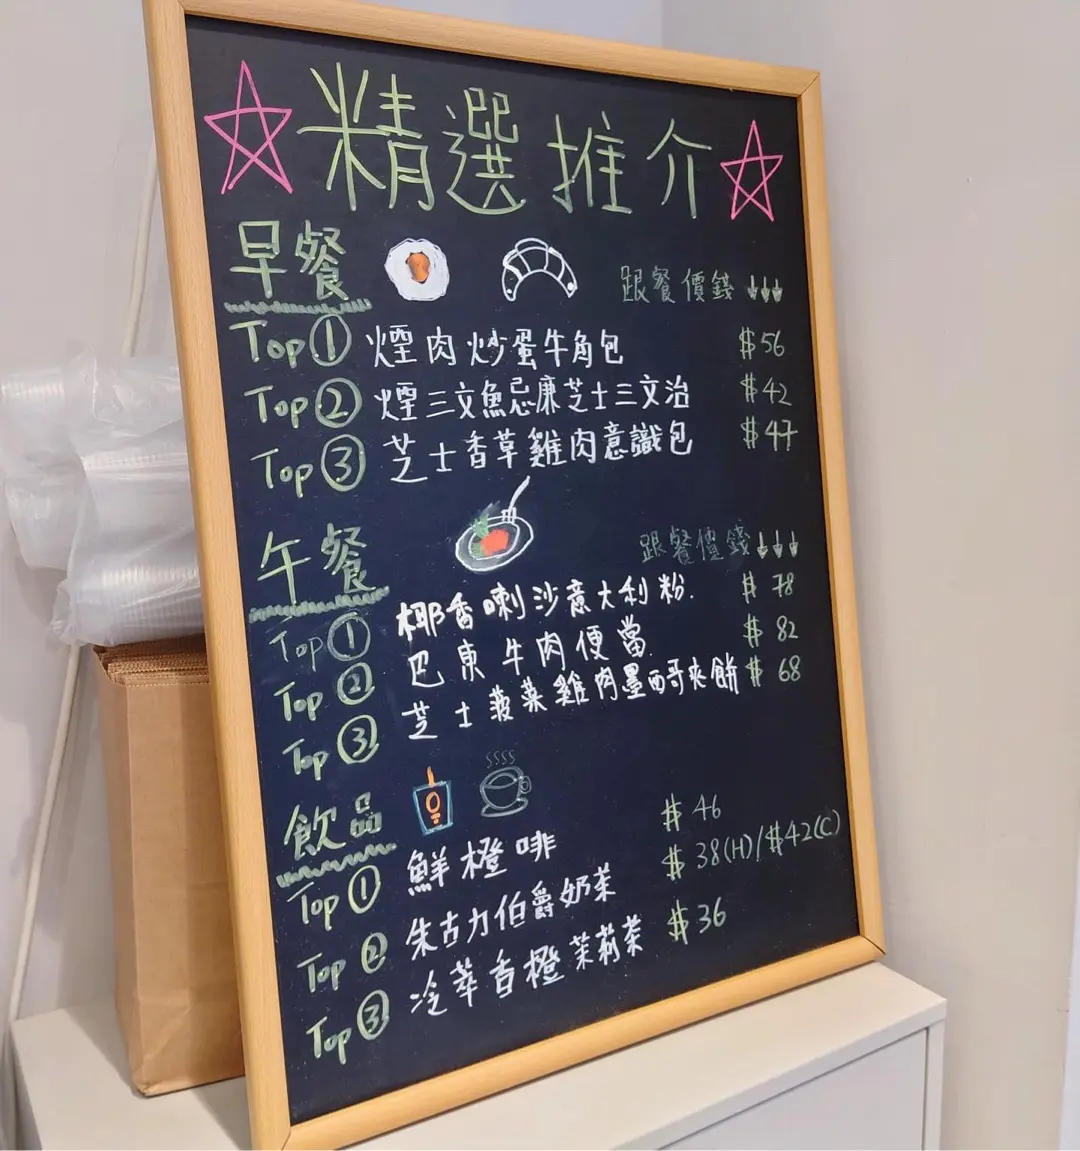 精選推介
早餐
跟餐價錢
Top ① 煙肉炒蛋牛角包 $56
Top ② 煙三文魚忌廉芝士三文治 $42
Top ③ 芝士香草雞肉意識包 $47
午餐
跟餐價錢
Top ① 椰香喇沙意大利粉. $78
Top ② 巴東牛肉便當. $82
Top ③ 芝士菠菜雞肉墨西哥夾餅 $68
飲品
Top ① 鮮橙啡 $46
Top ② 朱古力伯爵奶茶 $38(H)/$42(C)
Top ③ 冷萃香橙茉莉茶 $36